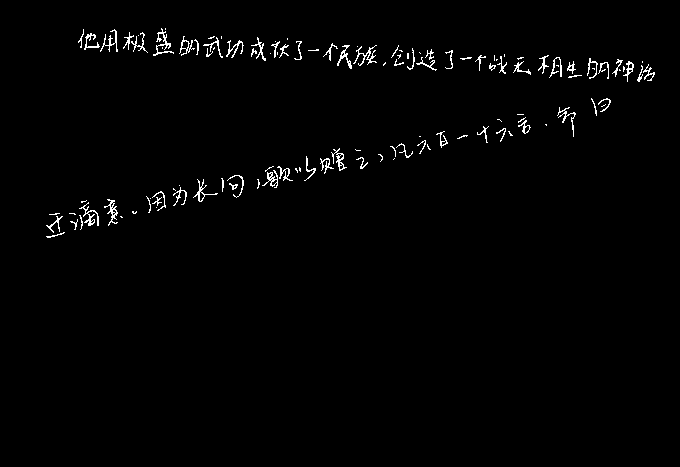 他用极盛的武功成状了一个民族,创造了一个战无相生的神话
迁滴意。因为长句,歌以赠之,凡六百一十六言.命曰